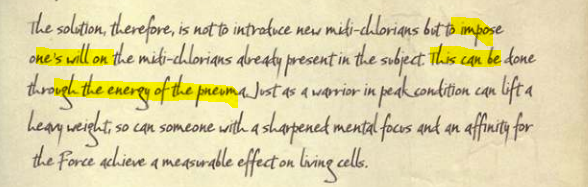 The solution, therefore, is not to introduce new midi-chlorians but to impose
one's will on the midi-chlorians already present in the subject. This can be done
through the energy of the pneuma. Just as a warrior in peak condition can lift a
heavy weight, so can someone with a sharpened mental focus and an affinity for
the Force achieve a measurable effect on living cells.